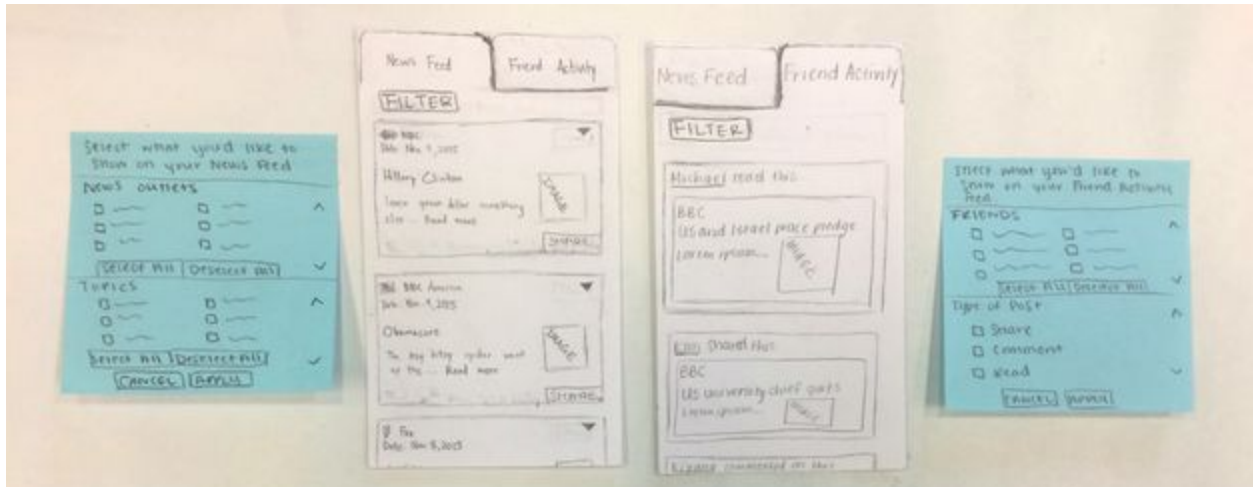 Select what you'd like to
Show on your News Feed
News outlets
Select All Deselect All
Topics
Select All Deselect All
CANCEL APPLY
News Feed Friend Activity
FILTER
NBC
Date: Nov 9, 2015
Hillary Clinton
IMAGE
else... Read more
SHARE
BBC America
Date: Nov 9, 2015
Obamacare
IMAGE
The itsy bitsy spider went
up the... Read more
SHARE
Fox
Date: Nov 8, 2015
News Feed Friend Activity
FILTER
Michael read this
BBC
US and Israel peace pledge
Lorem ipsum... IMAGE
shared this
BBC
US university chief quits
Lorem ipsum... IMAGE
commented on this
Select what you'd like to
Show on your Friend Activity
Feed
FRIENDS
Select All Deselect All
Type of Post
Share
Comment
Read
CANCEL APPLY